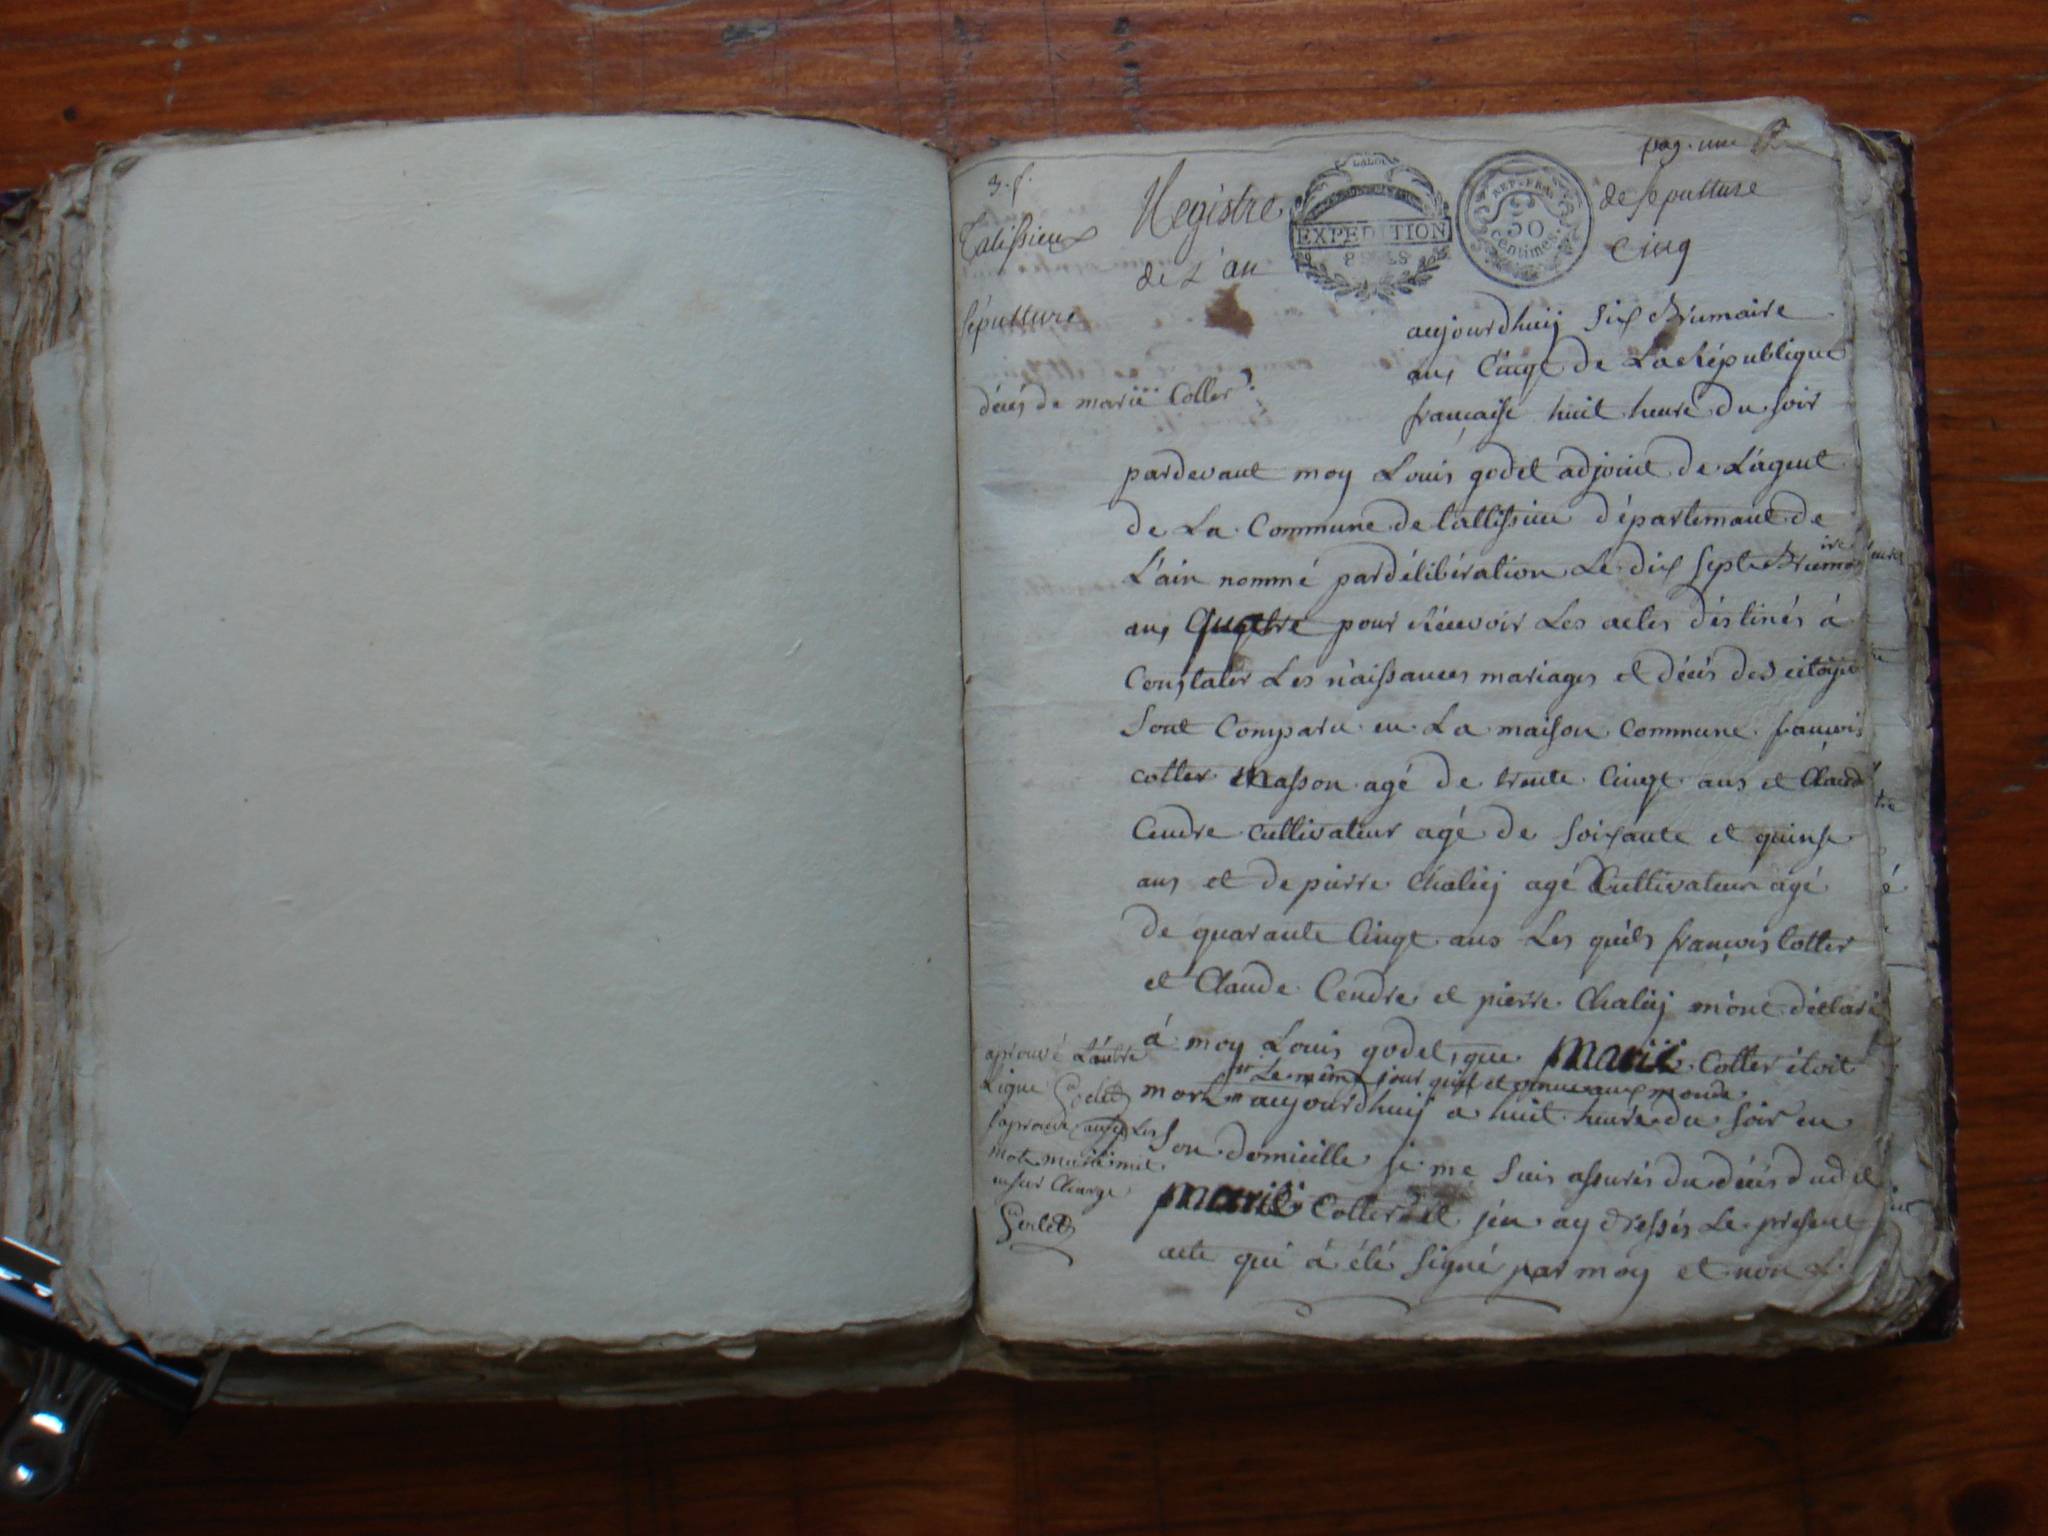 pag. une
3. f.
Talissieux
Registre de sepulture
EXPEDITION
REP. FRA.
50
centimes.
de L'an Cinq
sépulture
aujourdhuij six Brumaire
décés de marië Coller
an Cinqt de La République
francaise huit heure du soir
pardevant moy Louis godet adjoint de L'agent
de La Commune de tallissieu département de
L'ain nommé par délibération Le dix sept Brumaire
an quatre pour Récevoir Les actes déstinés à
Constater Les naissances mariages et décés des citoyen
Sont Comparu en La maison Commune francois
cotter masson agé de trente Cinqt ans et Claude
Cendre cultivateur agé de soixante et quinse
ans et de pierre Chaleij agé Cultivateur agé
de quarante Cinqt ans Les quels francois Cotter
et Claude Cendre et pierre Chaleij m'ont déclaré
à moy Louis godet, que marië Cotter étoit
Le même jour quil et venue aux monde
mort aujourdhuij a huit heure du soir en
son domicille je me suis assurés du décés dudet
marië Cotter et j'en ay dressés Le présent
acte qui à été signé par moy et non
aprouvé L'autre
Ligne Godet
japrouve aussy Les
mots marië mit
en sur charge
Godet